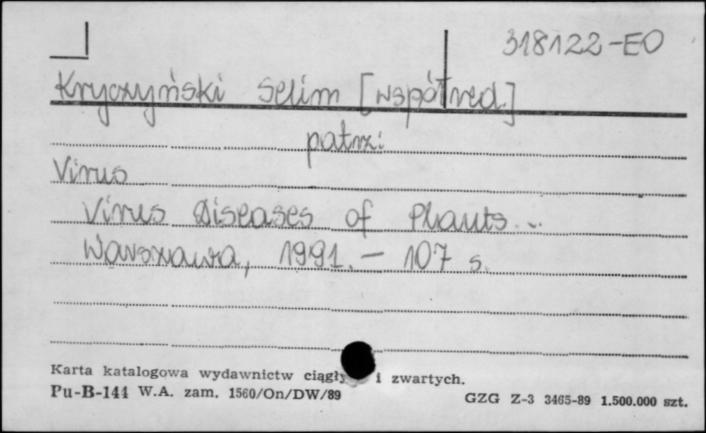 318122-EO
Kryczyński Selim [współred.]
patrz:
Virus
Virus Diseases of Plants..
Warszawa, 1991. - 107 s.
Karta katalogowa wydawnictw ciągły i zwartych.
Pu-B-144 W.A. zam. 1560/On/DW/89
GZG Z-3 3465-89 1.500.000 szt.